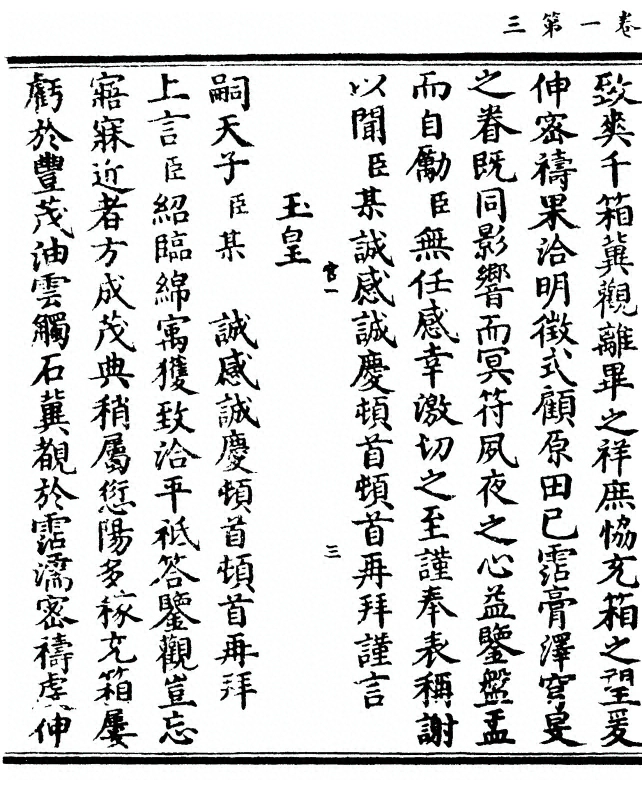 卷一第三
致爽千箱冀觀離畢之祥庶恊充箱之望爰
伸密禱果洽明徵式顧原田已霑膏澤穹旻
之眷既同影響而冥符夙夜之心益鑒盤盂
而自勵臣無任感幸激切之至謹奉表稱謝
以聞臣某誠感誠慶頓首頓首再拜謹言
宫一
三
玉皇
嗣天子臣某 誠感誠慶頓首頓首再拜
上言臣紹臨綿寓獲致洽平祗答鑒觀豈忘
寤寐近者方成茂典稍屬愆陽多稼充箱屢
虧於豐茂油雲觸石冀覩於霑濡密禱虔伸